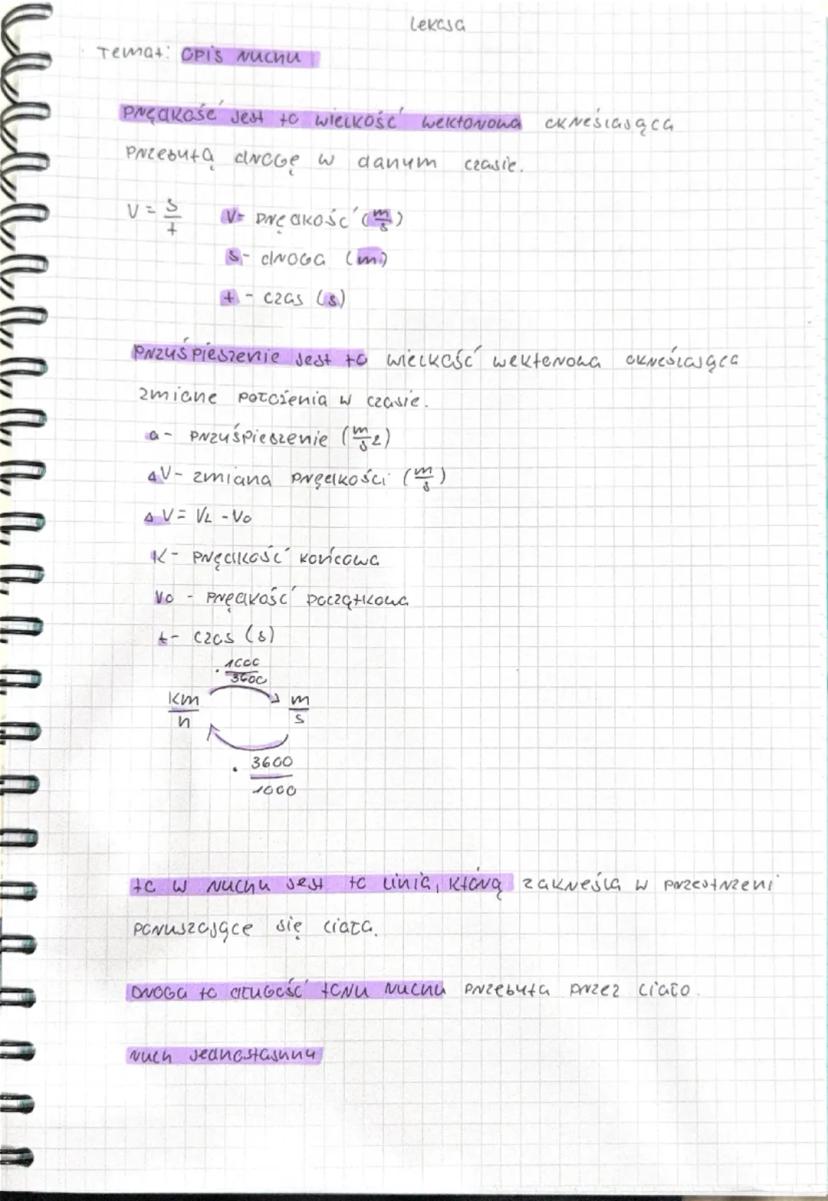 Lekcja
Temat: OPIS RUCHU
Prędkość jest to wielkość wektorowa określająca
przebytą drogę w danym czasie.
V = s/t V- prędkość (m/s)
s- droga (m)
t - czas (s)
Przyśpieszenie jest to wielkość wektorowa określająca
zmiane położenia w czasie.
a- przyśpieszenie (m/s2)
ΔV- zmiana prędkości (m/s)
ΔV = VL - V0
K- prędkość końcowa
V0 - prędkość początkowa
t- czas (s)
· 1000/3600
km/h m/s
· 3600/1000
to w ruchu jest to linia, którą zakreśla w przestrzeni
poruszające się ciała.
Droga to długość toru ruchu przebyta przez ciało.
Ruch jednostajny